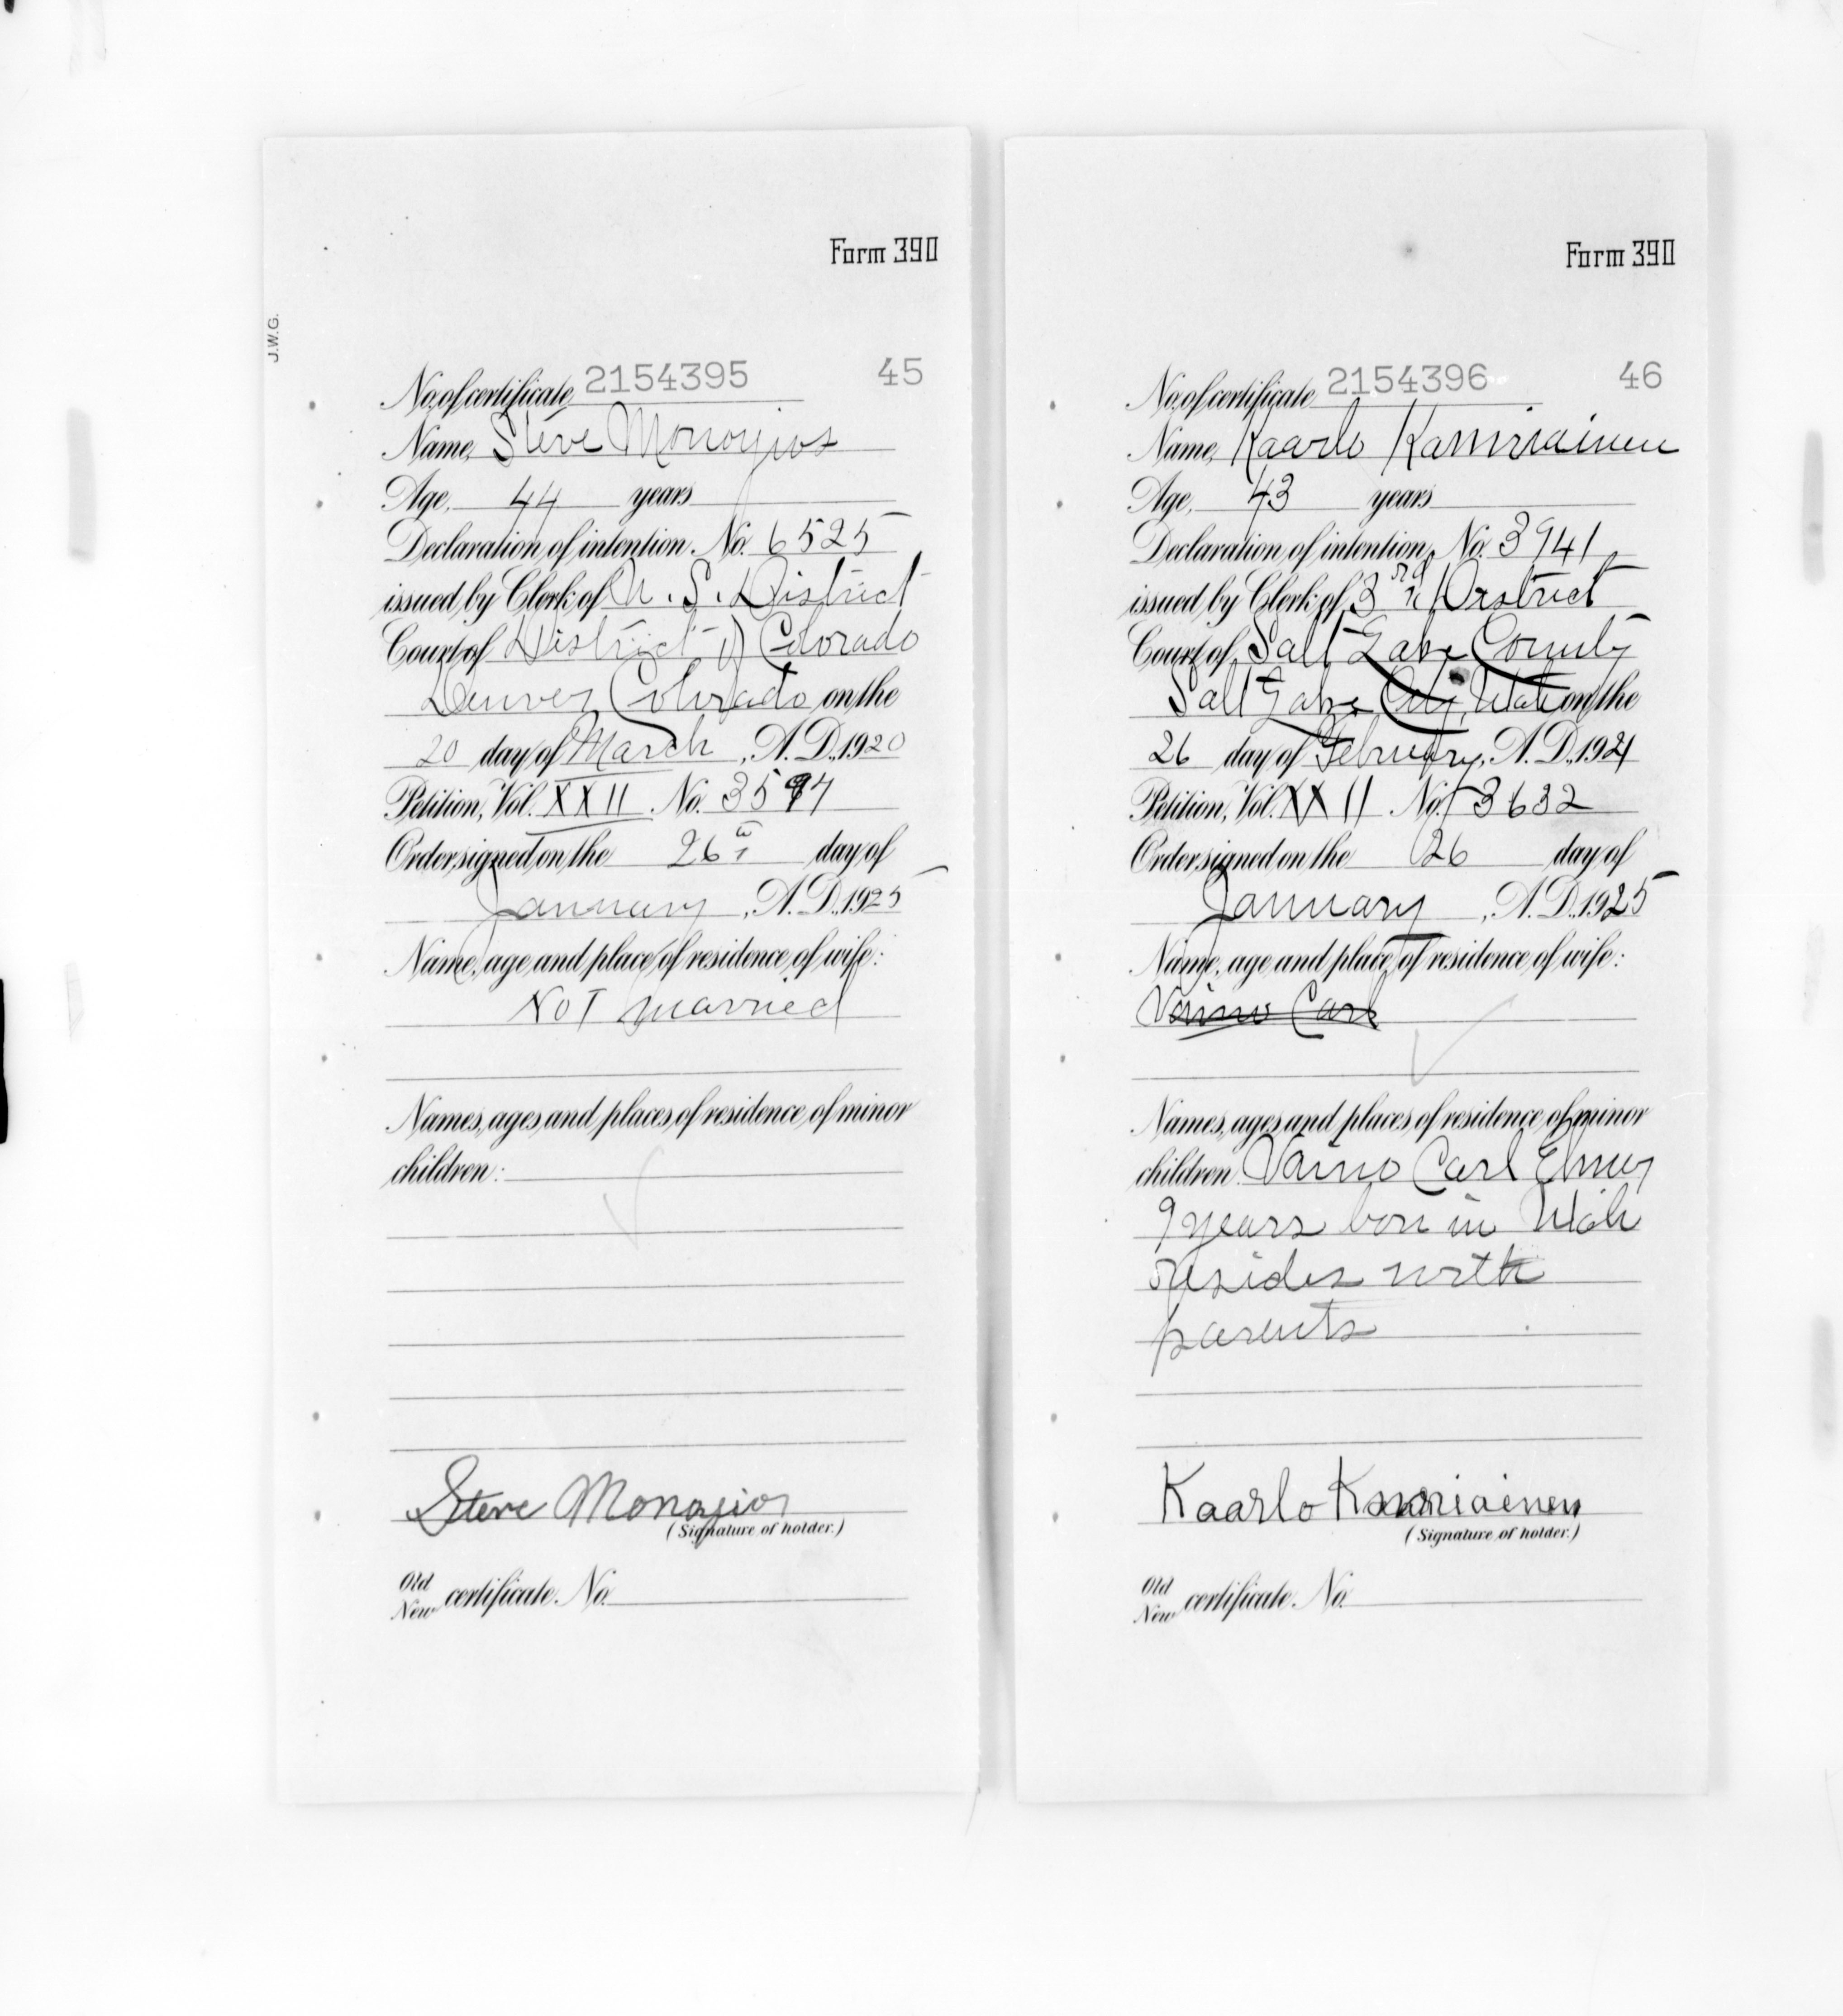 Form 390
J.W.G.
No. of certificate 2154395 45
Name, Steve Monoyios
Age, 44 years
Declaration of intention, No. 6525
issued by Clerk of U. S. District
Court of District of Colorado
Denver Colorado on the
20 day of March, A. D., 1920
Petition, Vol. XXII No. 3597
Order signed on the 26 day of
January, A. D., 1925
Name, age and place of residence of wife:
Not married
Names, ages and places of residence of minor
children:
Steve Monoyios
(Signature of holder.)
Old
New certificate No.
Form 390
No. of certificate 2154396 46
Name, Kaarlo
Age, 43 years
Declaration of intention, No. 3941
issued by Clerk of 3rd District
Court of Salt Lake County
Salt Lake City, Utah on the
26 day of February, A. D., 1921
Petition, Vol. XXII No. 3632
Order signed on the 26 day of
January, A. D., 1925
Name, age and place of residence of wife:
Vaino Carl
Names, ages and places of residence of minor
children: Vaino Carl Elmer
9 years born in Utah
resides with
parents
Kaarlo
(Signature of holder.)
Old
New certificate No.